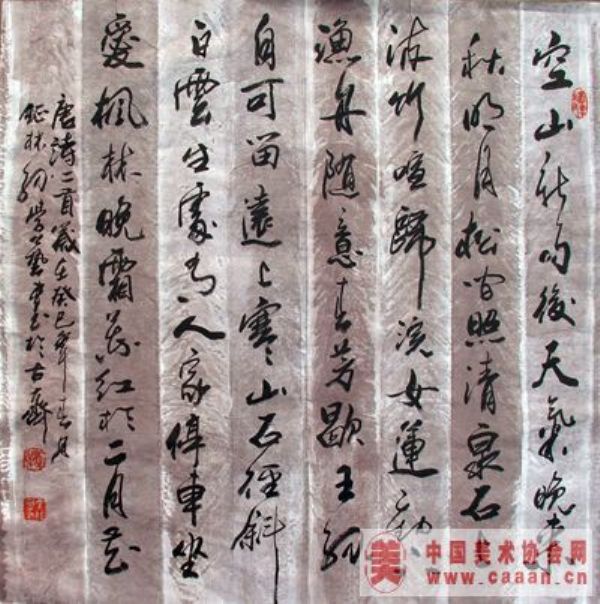 空山新雨後天氣晚來
秋明月松間照清泉石上
流竹喧歸浣女蓮動下
漁舟隨意春芳歇王孫
自可留遠上寒山石徑斜
白雲生處有人家停車坐
愛楓林晚霜葉紅於二月花
唐詩二首歲在癸巳年春月
林 學藝書於古齊
美 中国美术协会网
www.caaan.cn